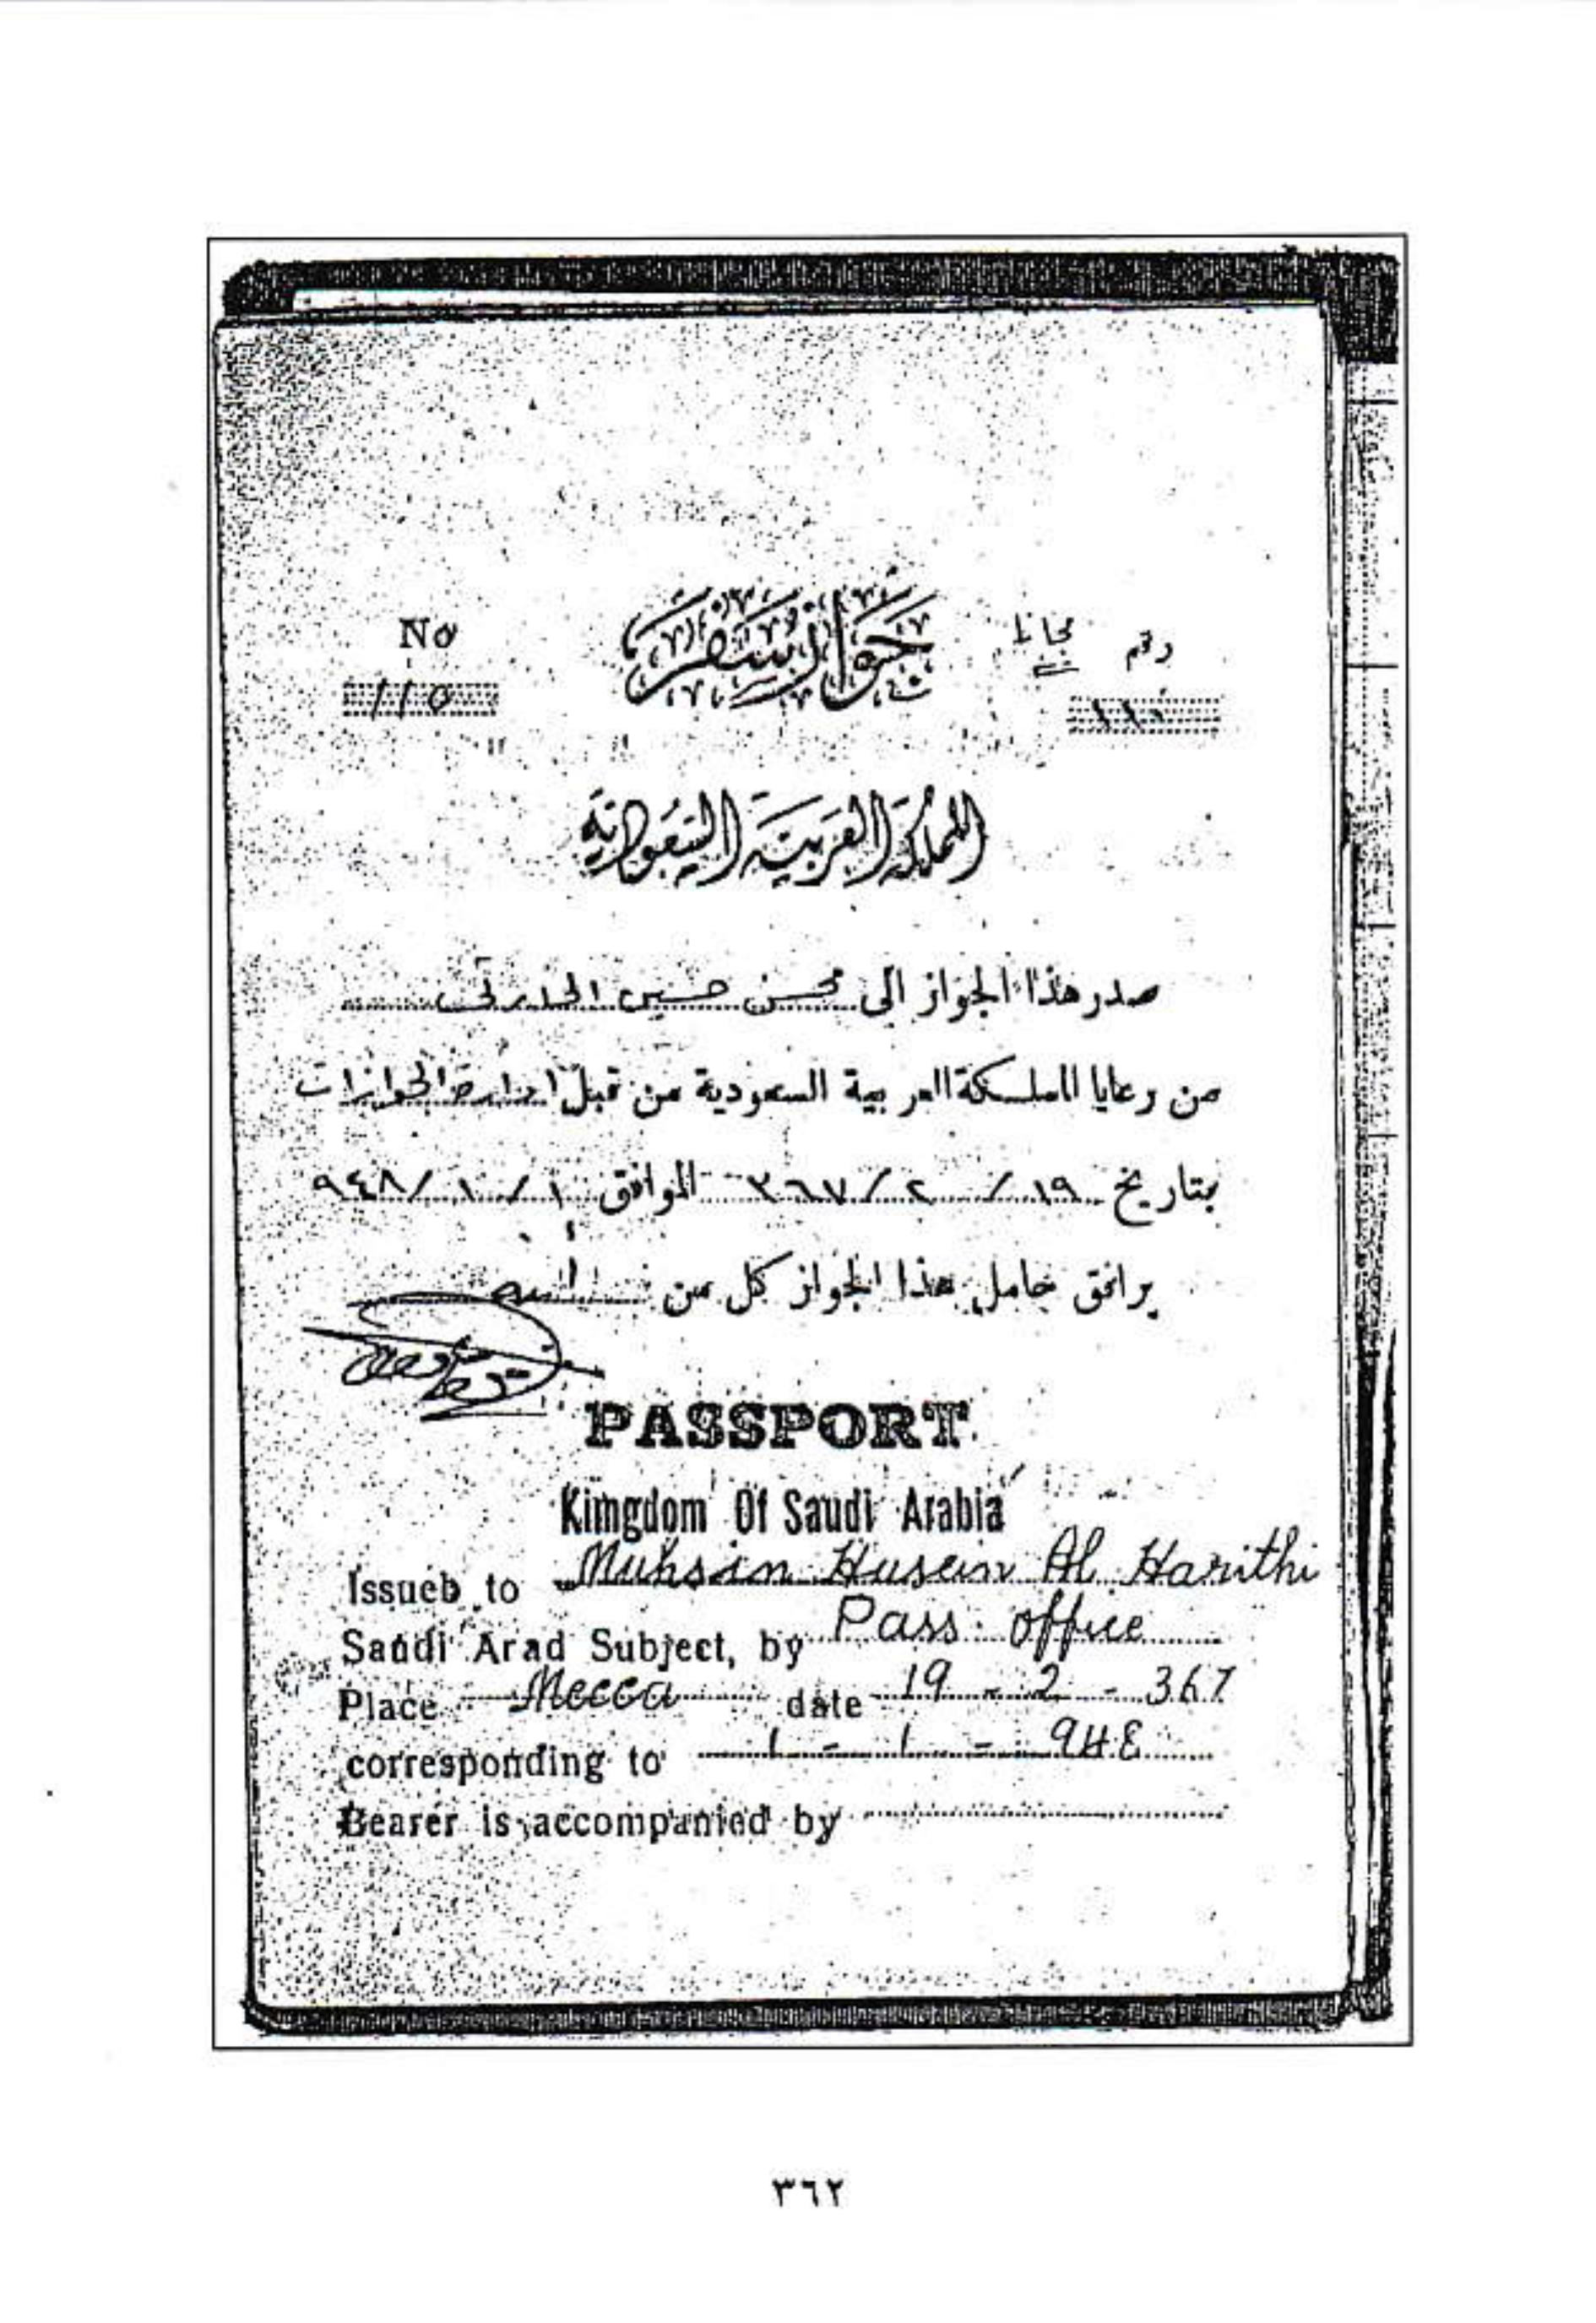 No جواز سفر مجانا رقم
110 ١١٠
المملكة العربية السعودية
صدر هذا الجواز الى محسن حسين الحارثى
من رعايا المملكة العربية السعودية من قبل ادارة الجوازات
بتاريخ ١٩ / ٢ / ٣٦٧ الموافق ١ / ١ / ٩٤٨
يرافق حامل هذا الجواز كل من
PASSPORT
Kimgdom Of Saudi Arabia
Issueb to Muhsin Husein Al Harithi
Saudi Arad Subject, by Pass. office
Place Mecca date 19 - 2 - 367
corresponding to 1 - 1 - 948
Bearer is accompanied by
٣٦٢